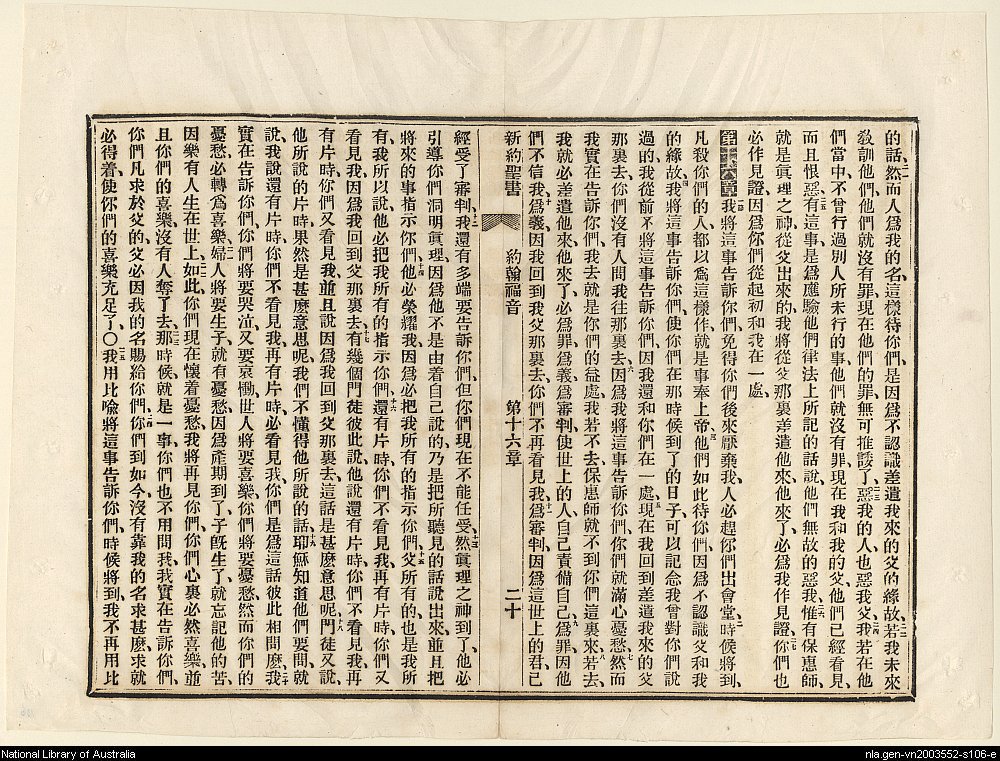 的話、然而人爲我的名、這樣待你們、是因爲不認識差遣我來的父的緣故、若我未來
敎訓他們、他們就沒有罪、現在他們的罪、無可推諉了、惡我的人、也惡我父、我若在他
們當中、不曾行過別人所未行的事、他們就沒有罪、現在我和我的父、他們已經看見、
而且恨惡、有這事、是爲應驗他們律法上所記的話、說、他們無故的惡我、惟有保惠師、
就是眞理之神、從父出來的、我將從父那裏差遣他來、他來了、必爲我作見證、你們也
必作見證、因爲你們從起初和我在一處、
第十六章 我將這事告訴你們、免得你們後來厭棄我、人必趕你們出會堂、時候將到、
凡殺你們的人、都以爲這樣作、就是事奉上帝、他們如此待你們、因爲不認識父和我
的緣故、我將這事告訴你們、使你們在那時候到了的日子、可以記念我曾對你們說
過的、我從前不將這事告訴你們、因我還和你們在一處、現在我回到差遣我來的父
那裏去、你們沒有人問我往那裏去、因爲我將這事告訴你們、你們就滿心憂愁、然而
我實在告訴你們、我去就是你們的益處、我若不去、保惠師就不到你們這裏來、若去、
我就必差遣他來、他來了、必爲罪爲義爲審判、使世上的人自己責備自己、爲罪、因他
們不信我、爲義、因我回到我父那裏去、你們不再看見我、爲審判、因爲這世上的君、已
新約聖書 約翰福音 第十六章 二十
經受了審判、我還有多端要告訴你們、但你們現在不能任受、然眞理之神到了、他必
引導你們洞明眞理、因爲他不是由着自己說的、乃是把所聽見的話說出來、並且把
將來的事指示你們、他必榮耀我、因爲必把我所有的指示你們、父所有的、也是我所
有、我所以說、他必把我所有的指示你們、還有片時、你們不看見我、再有片時、你們又
看見我、因爲我回到父那裏去、有幾個門徒彼此說、他說還有片時、你們不看見我、再
有片時、你們又看見我、並且說因爲我回到父那裏去、這話是甚麽意思呢、門徒又說、
他所說的片時、果然是甚麽意思呢、我們不懂得他所說的話、耶穌知道他們要問、就
說、我說還有片時、你們不看見我、再有片時、必看見我、你們是爲這話彼此相問麽、我
實在告訴你們、你們將要哭泣、又要哀慟、世人將要喜樂、你們將要憂愁、然而你們的
憂愁、必轉爲喜樂、婦人將要生子、就有憂愁、因爲產期到了、子旣生了、就忘記他的苦、
因樂有人生在世上、如此、你們現在懷着憂愁、我將再見你們、你們心裏必然喜樂、並
且你們的喜樂、沒有人奪了去、那時候、就是一事、你們也不用問我、我實在告訴你們、
你們凡求於父的、父必因我的名賜給你們、你們到如今、沒有靠我的名求甚麽、求就
必得着、使你們的喜樂充足了、〇我用比喻將這事告訴你們、時候將到、我不再用比
National Library of Australia
nla.gen-vn2003552-s106-e